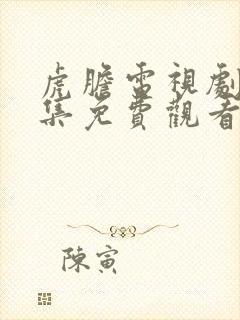 虎膽雷視劇
集免費觀看
陳寅